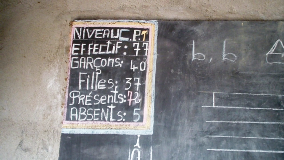 NIVEAU C.P.1
EFFECTIF : 77
GARÇONS : 40
Filles : 37
Présents : 72
ABSENTS : 5
b, b